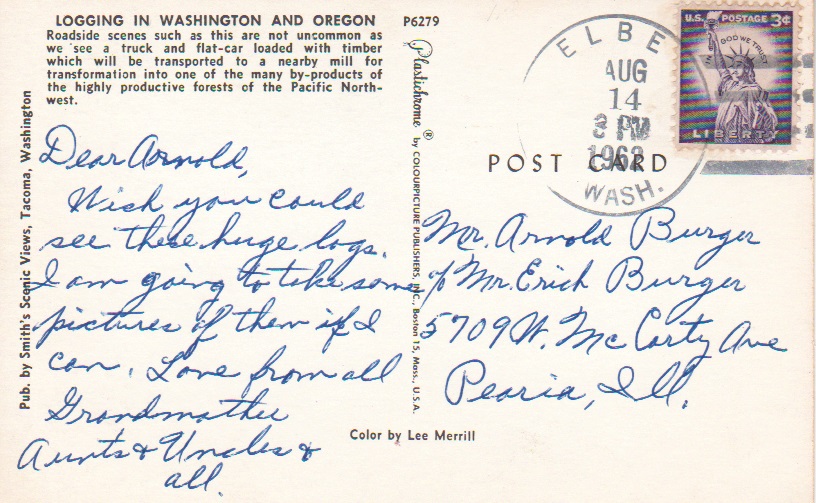 LOGGING IN WASHINGTON AND OREGON
Roadside scenes such as this are not uncommon as
we see a truck and flat-car loaded with timber
which will be transported to a nearby mill for
transformation into one of the many by-products of
the highly productive forests of the Pacific North-
west.
P6279
Pub. by Smith's Scenic Views, Tacoma, Washington
Dear Arnold,
Wish you could
see these huge logs.
I am going to take some
pictures of them if I
can. Love from all
Grandmother
Aunts & Uncles &
all.
Plastichrome ® by COLOURPICTURE PUBLISHERS, INC., Boston 15, Mass., U.S.A.
ELBE
AUG
14
3 PM
1962
WASH.
U.S. POSTAGE 3¢
IN GOD WE TRUST
LIBERTY
POST CARD
Mr. Arnold Burger
℅ Mr. Erich Burger
5709 W. Mc Carty Ave
Peoria, Ill.
Color by Lee Merrill